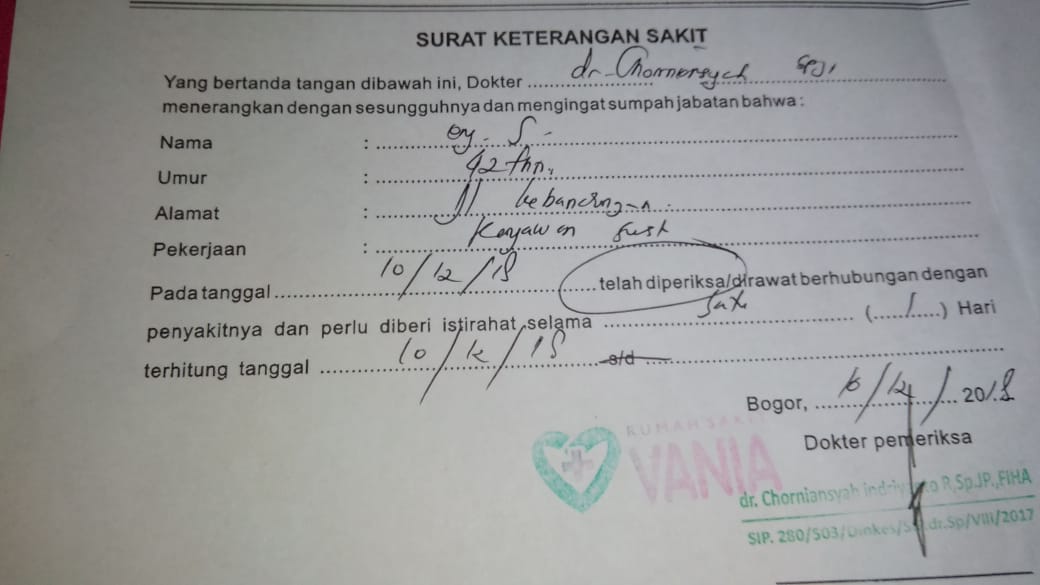 SURAT KETERANGAN SAKIT
Yang bertanda tangan dibawah ini, Dokter dr.
menerangkan dengan sesungguhnya dan mengingat sumpah jabatan bahwa :
Nama : S
Umur : 42 thn,
Alamat : Jl
Pekerjaan : Karyawan
Pada tanggal 10/12/18 telah diperiksa/dirawat berhubungan dengan
penyakitnya dan perlu diberi istirahat selama satu (..1..) Hari
terhitung tanggal 10/12/18 s/d
Bogor, 10/12/ 2018
Dokter pemeriksa
RUMAH SAKIT
VANIA
dr. Chorniansyah R,Sp.JP.,FIHA
SIP. 280/503/Dinkes/ .dr.Sp/VIII/2017